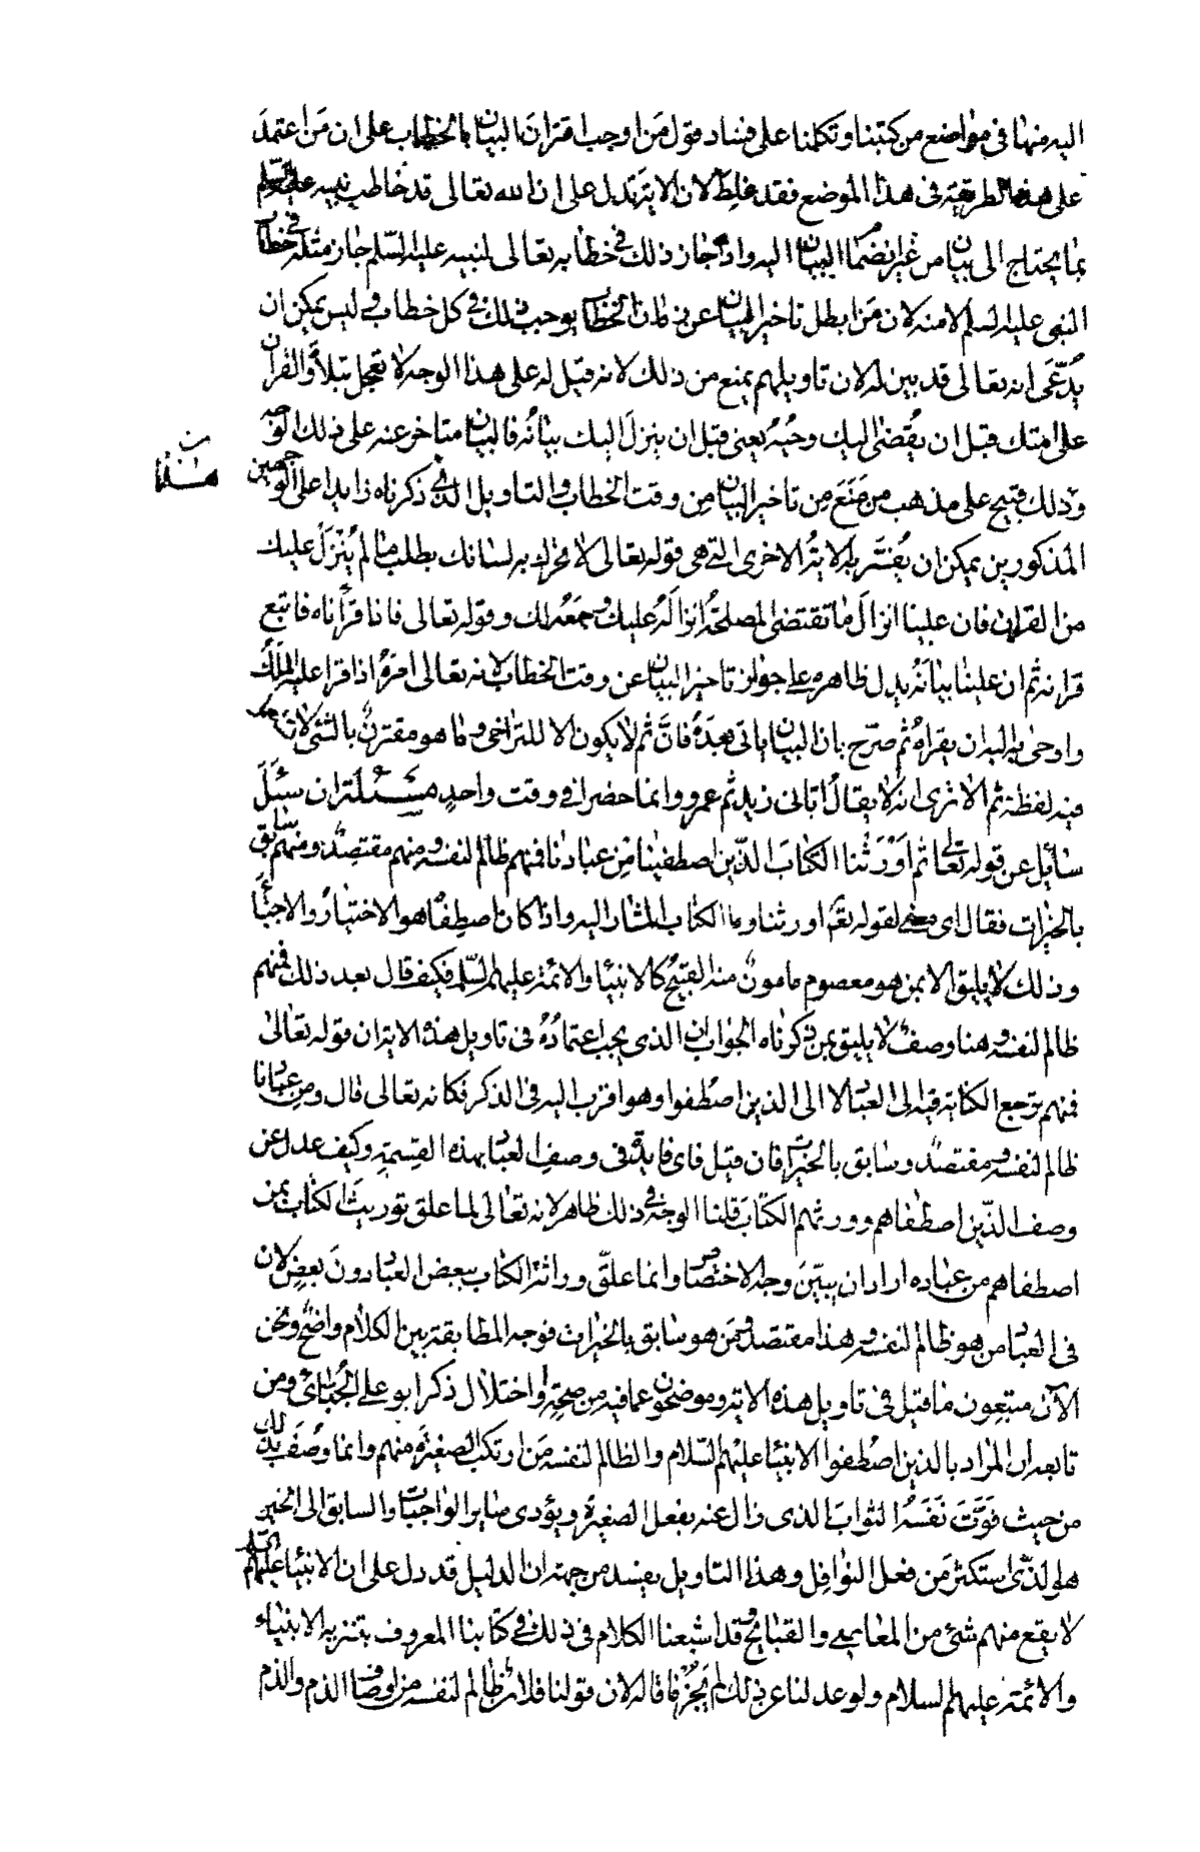 اليه منها في مواضع من كتبنا وتكلمنا على فساد قول من اوجب اقتران البيان بالخطاب على ان من اعتمد
على هذه الطريقة في هذا الموضع فقد غلط لان الاية تدل على ان الله تعالى قد خاطب نبيه عليه السلم
بما يحتاج الى بيان من غير انضمام البيان اليه واذا جاز ذلك في خطابه تعالى لنبيه عليه السلم جاز مثله في خطاب
النبي عليه السلم لامته لان من ابطل تاخير البيان عن زمان الخطاب يوجب ذلك في كل خطاب وليس يمكن ان
يدعى انه تعالى قد بين له لان تاويلهم يمنع من ذلك لانه قيل له على هذا الوجه لا تعجل بتلاوة القران
على امتك قبل ان يقضى اليك وحيه يعني قبل ان ينزل اليك بيانه فالبيان متاخر عنه على ذلك الوجه
وذلك قبيح على مذهب من منع من تاخير البيان من وقت الخطاب والتاويل الذي ذكرناه زايدا على الوجهين
المذكورين يمكن ان يفسر به الاية الاخرى التي هي قوله تعالى لا تحرك به لسانك بطلب ما لم ينزل عليك
من القران فان علينا انزال ما تقتضي المصلحة انزاله عليك وجمعه لك وقوله تعالى فاذا قرأناه فاتبع
قرانه ثم ان علينا بيانه يدل ظاهره على جواز تاخير البيان عن وقت الخطاب لانه تعالى امره اذا قرا عليه الملك
واوحى به اليه ان يقراه ثم صرح بان البيان ياتي بعده فان ثم لا يكون الا للتراخي وما هو مقترن بالشئ لا تستعمل
فيه لفظة ثم الا ترى انه لا يقال اتاني زيد ثم عمرو وانما حضرا في وقت واحد مسئلة ان سئل
سائل عن قوله تعالى ثم اورثنا الكتاب الذين اصطفينا من عبادنا فمنهم ظالم لنفسه ومنهم مقتصد ومنهم سابق
بالخيرات فقال اي معنى لقوله تعم اورثنا وما الكتاب المشار اليه واذا كان اصطفاه هو الاختيار والاجتباء
وذلك لا يليق الا بمن هو معصوم مامون منه القبيح كالانبياء والائمة عليهم السلم فكيف قال بعد ذلك فمنهم
ظالم لنفسه وهنا وصف لا يليق بمن ذكرناه الجواب ان الذي يجب اعتماده في تاويل هذه الاية ان قوله تعالى
فمنهم يرجع الكناية فيه الى العباد لا الى الذين اصطفوا وهو اقرب اليه في الذكر فكانه تعالى قال ومن عبادنا
ظالم لنفسه ومقتصد وسابق بالخيرات فان قيل فاي فايدة في وصف العباد بهذه القسمة وكيف عدل عن
وصف الذين اصطفاهم وورثهم الكتاب قلنا الوجه في ذلك ظاهر لانه تعالى لما علق توريث الكتاب بمن
اصطفاهم من عباده اراد ان يبين وجه الاختصاص وانما علق وراثة الكتاب ببعض العباد دون بعض لان
في العباد من هو ظالم لنفسه وهذا مقتصد ومن هو سابق بالخيرات فوجه المطابقة بين الكلام واضح ونحن
الآن متبعون ما قيل في تاويل هذه الاية وموضحون عما فيه من صحة واختلال ذكر ابو علي الجبائي ومن
تابعه ان المراد بالذين اصطفوا الانبياء عليهم السلام والظالم لنفسه من ارتكب الصغيرة منهم وانما وصف بذلك
من حيث فوت نفسه الثواب الذي زال عنه بفعل الصغيرة ويؤدى سايرالواجبات والسابق الى الخير
هو الذي استكثر من فعل النوافل وهذا التاويل يفسد من جهة ان الدليل قد دل على ان الانبياء عليهم السلم
لا يقع منهم شئ من المعاصي والقبايح وقد اشبعنا الكلام في ذلك في كتابنا المعروف بتنزيه الانبياء
والائمة عليهم السلام ولو عدلنا عن ذلك لم يجز ما قاله لان قولنا فلان ظالم لنفسه من اوصاف الذم والذم